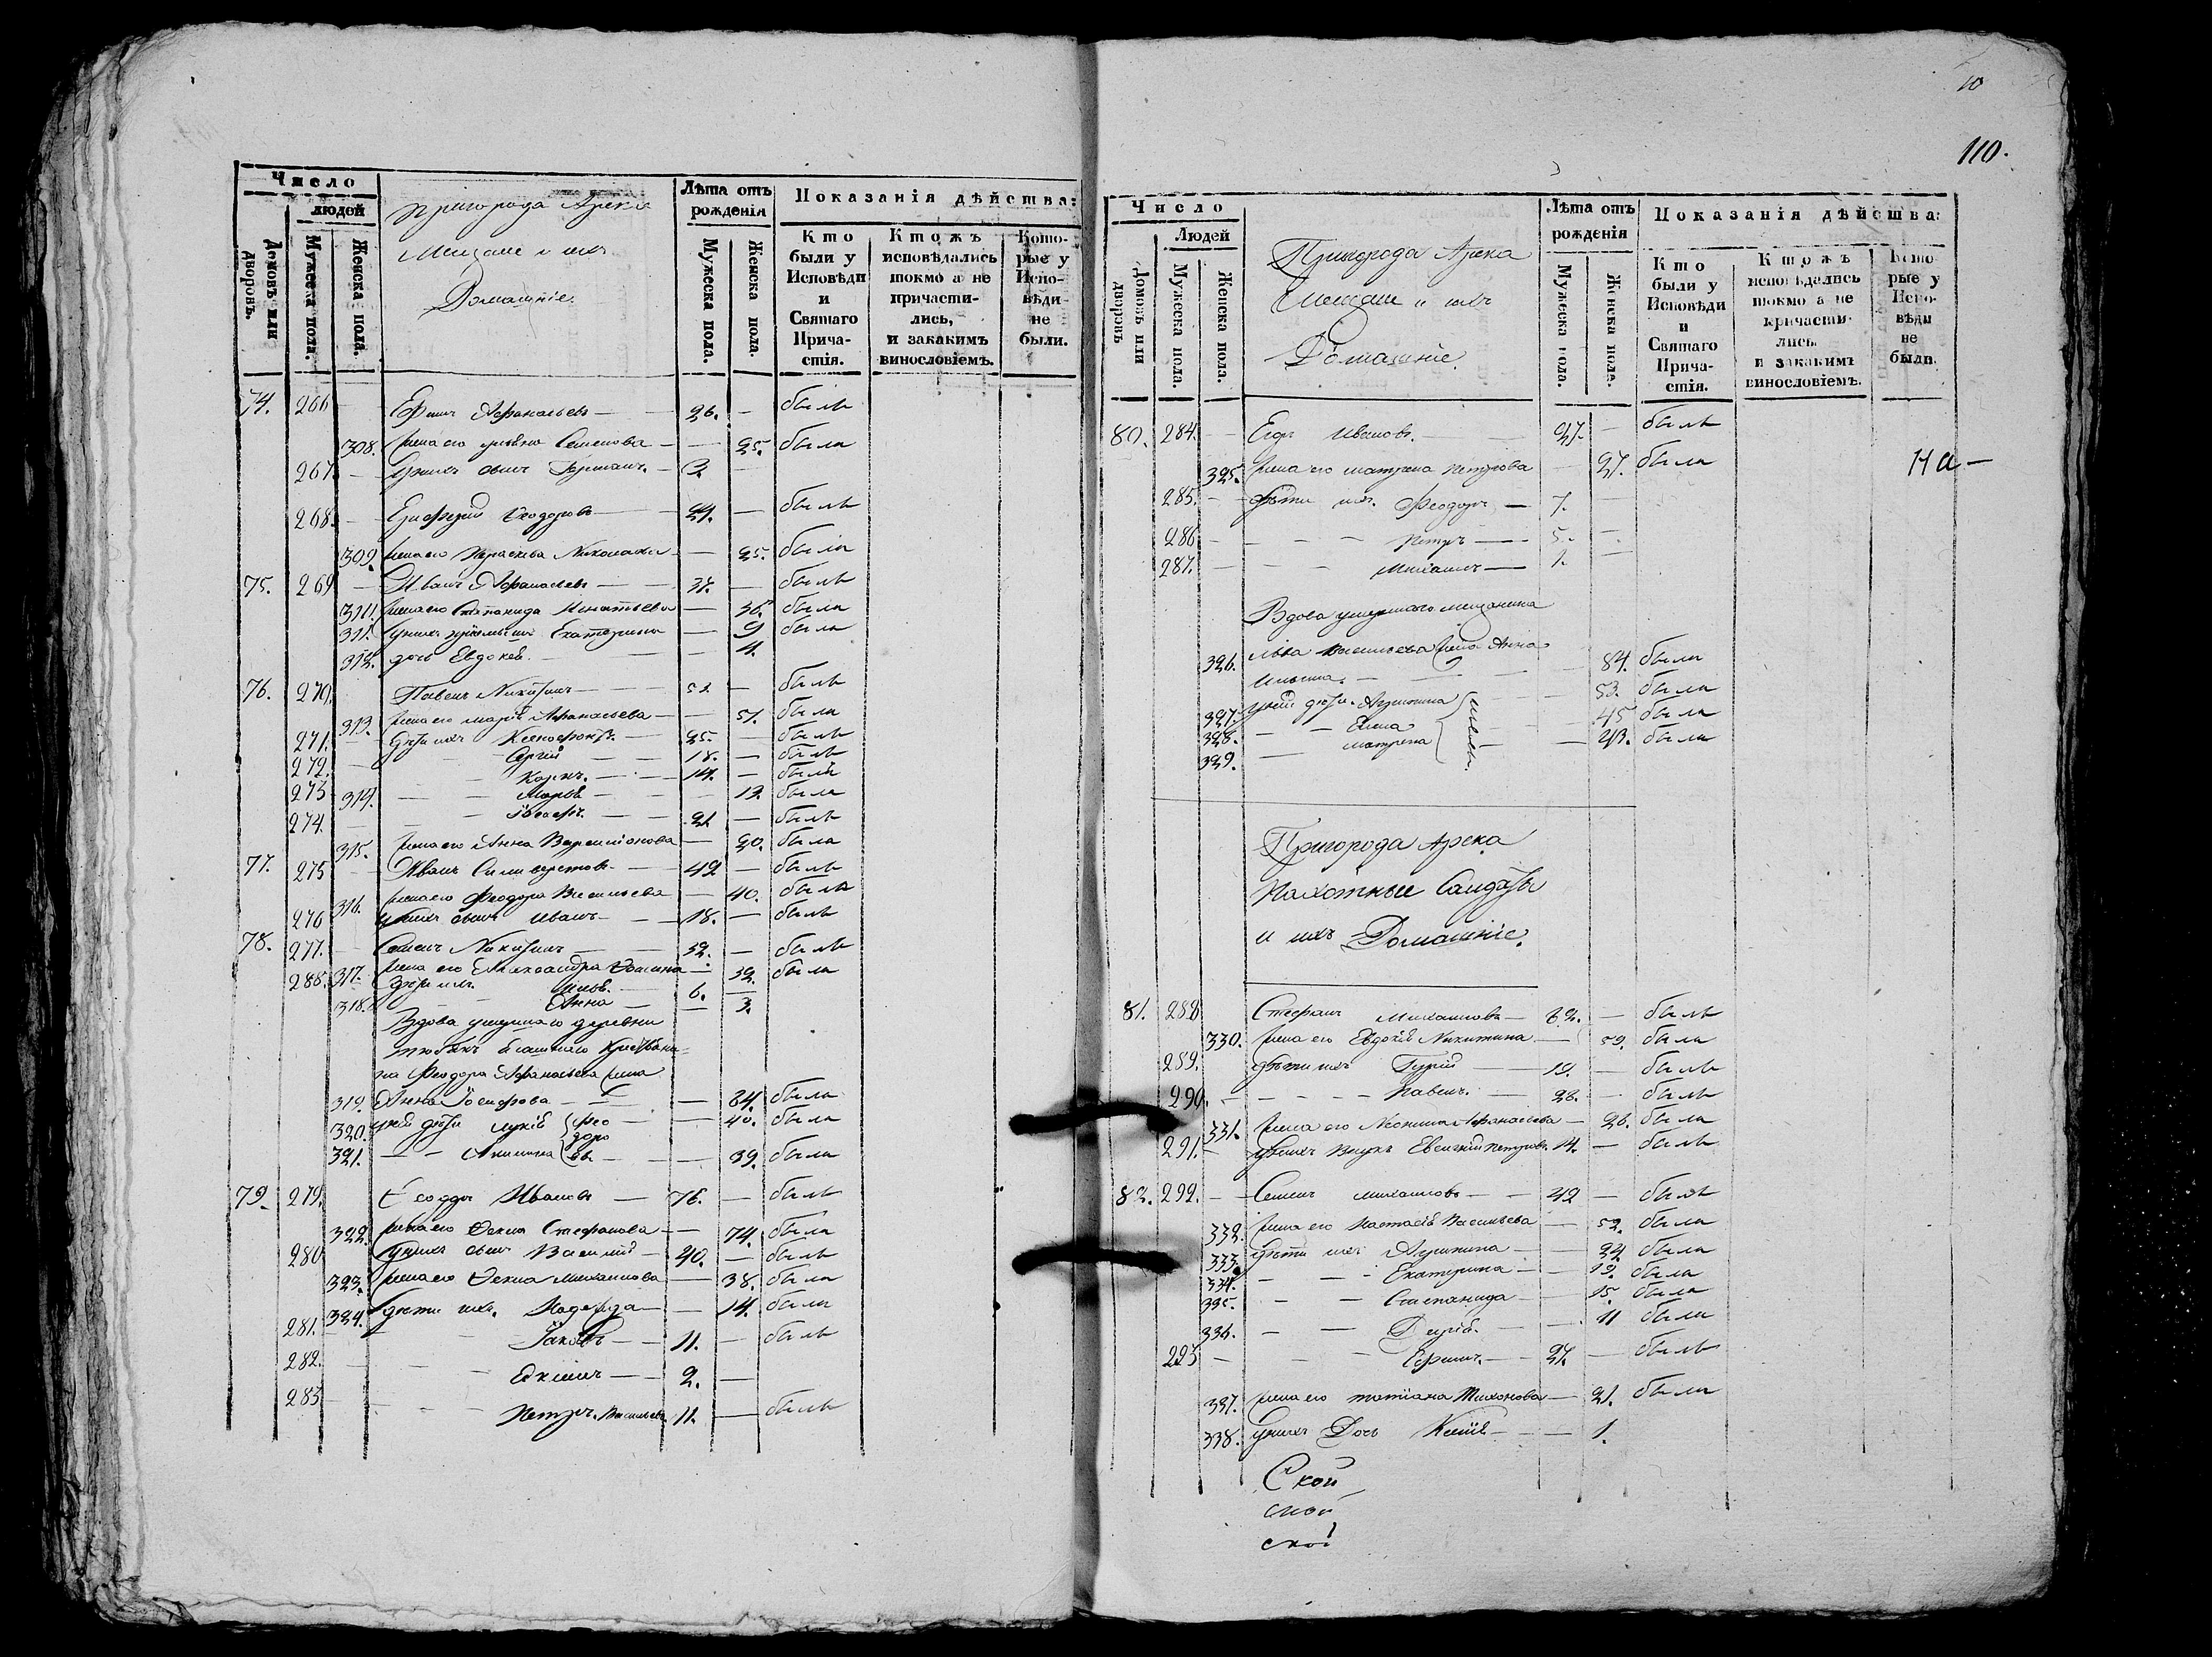 Число
людей
Домовъ или дворовъ.
Мужеска пола.
Женска пола.
пригорода Арска
Мещане и ихъ
Домашніе.
Лѣта отъ рожденія
Мужеска пола.
Женска пола.
Показанія дѣйства:
Кто были у Исповѣди и Святаго Прича-стія.
Ктожъ исповѣдались токмо а не причасти-лись, и закакимъ винословіемъ.
Кото-рые у Испо-вѣди не были.
74. 266 — Афанасьевъ — 26. — былъ
308. жена его Семенова — — 25. была
267. — у нихъ сынъ — 3. —
268. — Феодоровъ — 24. — былъ
309. жена его Параскева Николаева — — 25. была
75. 269 — Иванъ Афанасьевъ — 37. — былъ
310. жена его Степанида Игнатьева — 36. была
311. у нихъ Екатерина — 9 была
312. дочь Евдокѣя — — 4.
76. 270. Павелъ Никитинъ — 52 — былъ
313. жена его Марія Афанасьева — — 51. была
271. — дѣти ихъ Ксенофонтъ. — 25. — былъ
272. — Сергій — 18. — былъ
273 Карпъ. — 14. — былъ
314. — — Марѳа — — 13. была
274. — — Іосифъ. — 21 — былъ
315. жена его Анна — 20. была
77. 275 — Иванъ Силиверстовъ — 42 — былъ
316. жена его Феодора Васильева — 40. была
276 у нихъ сынъ Иванъ — 18. — былъ
78. 277. — Семенъ Никитинъ — 32. — былъ
317. жена его Александра — 32. была
288. дѣти ихъ Илья. — 6. —
318. — Анна — 3.
Вдова умершаго деревни
крестьяни-
на Феодора Афанасьева жена
319. Анна Іосифова — — 84. была
320. у ней дѣти Феодоровы — 40. была
321. — — Акилина — — 39. была
79. 279. Ѳеодоръ Ивановъ — 76. — былъ
322. жена его Ѳекла Стефанова — 74. была
280 у нихъ сынъ Василій — 40. — былъ
323. жена его Ѳекла Михаилова — 38. была
324. дѣти ихъ. Надежда — — 14. была
281. — — Іаковъ — — 11. — былъ
282. — — — 2. —
283 — — Петръ Васильевъ 11. — былъ
10
110.
Число
Людей
Домовъ или дворовъ
Мужеска пола.
Женска пола.
Пригорода Арска
Мещане и ихъ
Домашніе.
Лѣта отъ рожденія
Мужеска пола.
Женска пола.
Показанія дѣйства:
Кто были у Исповѣди и Святаго Прича-стія.
Ктожъ исповѣдались токмо а не причасти-лись и закакимъ винословіемъ.
Кото-рые у Испо-вѣди не были.
80. 284. — Егоръ Ивановъ. — 27. — былъ
325. жена его Матрена Петрова — 27. была На —
285. — дѣти ихъ. Феодоръ — 7. —
286 — — Петръ — 5. —
287. — — Михаилъ — 1.
Вдова умершаго мещанина
326. Льва Васильева жена Анна
Ильина. — — 84. была
327. у ней дѣти. — — 53. была
328. — — Елена — — 45 была
329. — Матрена — — 43. была
Пригорода Арска
Пахотные Салдаты
и ихъ Домашніе.
81. 288 Стефанъ Михаиловъ — 62. — былъ
330. жена его Евдокія Никитина — 59. была
289. дѣти ихъ Гурій — 19. — былъ
290. — — — Павелъ. — 28. — былъ
331. жена его Афанасьева — 26. была
291. — у нихъ внукъ Евсигній Петровъ 14. — былъ
82. 292. — Семенъ Михаиловъ — 42 — былъ
332. жена его Настасія Васильева — 52. была
333. дѣти ихъ — — 24. была
334. — — Екатерина — — 19. была
335. — — Степанида — 15. была
336. — — Дарія. — — 11 была
293 — — Ефимъ. — 27. — былъ
337. жена его Татіана Тихонова — 21. была
338. у нихъ Дочь Ксенія — — 1.
Ской
ской
ской